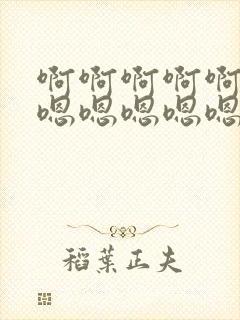 啊啊啊啊啊
嗯嗯嗯嗯嗯
稻葉正夫